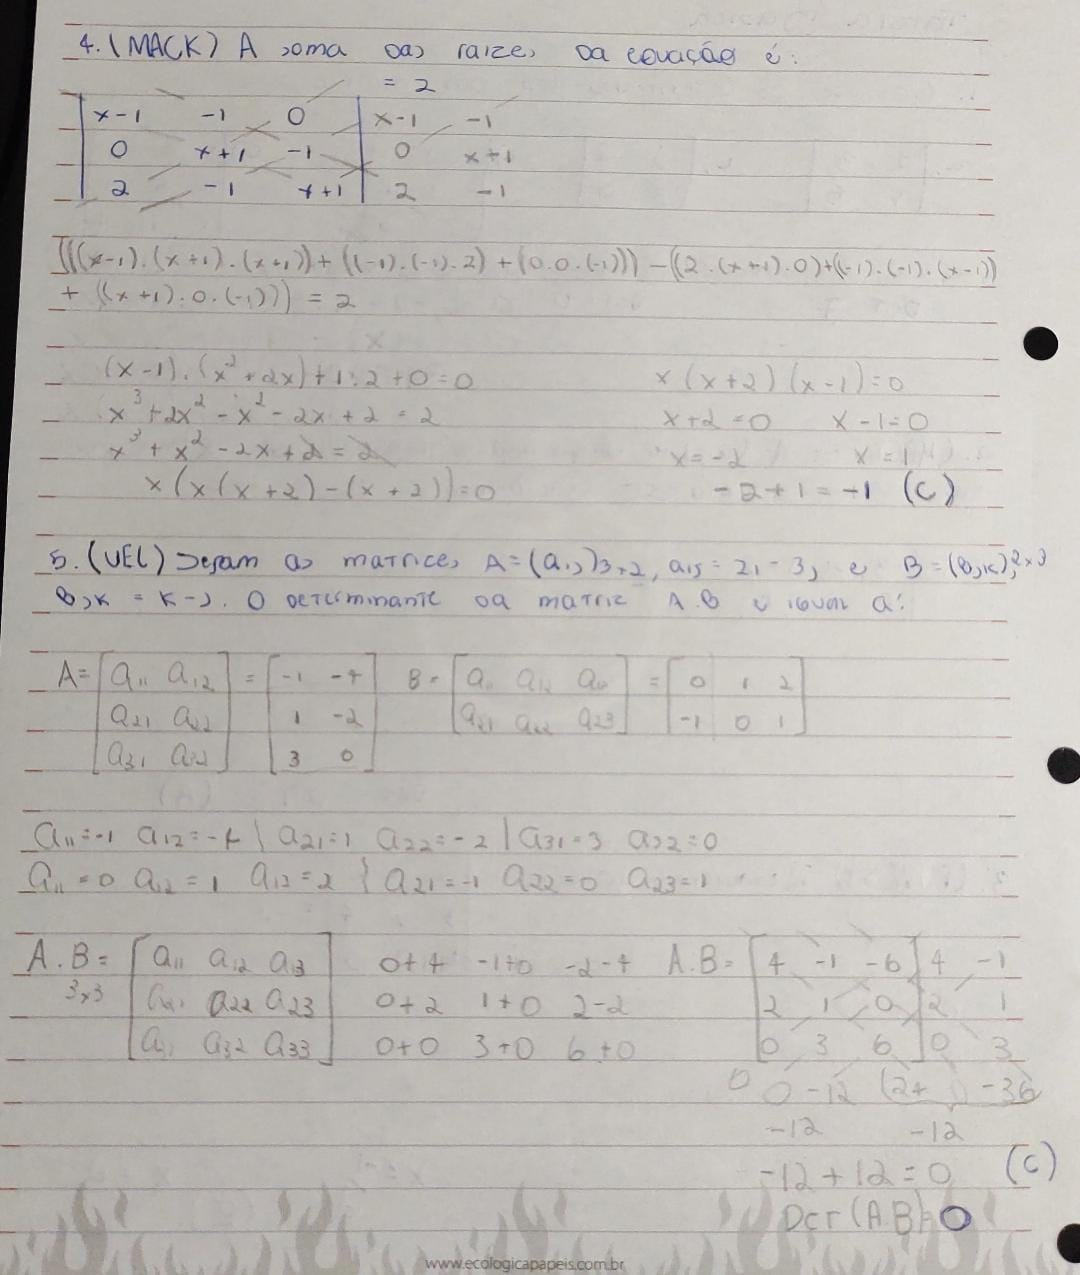 4. (MACK) A soma das raizes da equação é:
= 2
x-1 -1 0 x-1 -1
0 x+1 -1 0 x+1
2 -1 x+1 2 -1
(((x-1).(x+1).(x+1))+((-1).(-1).2)+(0.0.(-1)))-((2.(x+1).0)+((-1).(-1).(x-1))
+((x+1).0.(-1))) = 2
(x-1).(x²+2x)+1.2+0=0
x³+2x²-x²-2x+2=2
x³+x²-2x+2=2
x(x(x+2)-(x+2))=0
x(x+2)(x-1)=0
x+2=0 x-1=0
x=-2 x=1
-2+1=-1 (C)
5. (UEL) Sejam as matrizes A=(aij)3x2, aij=2i-3j e B=(bjk)2x3
bjk = k-j. O determinante da matriz A.B é igual a:
A= a11 a12 = -1 -4 B= a11 a12 a13 = 0 1 2
a21 a22 1 -2 a21 a22 a23 -1 0 1
a31 a32 3 0
a11=-1 a12=-4 | a21=1 a22=-2 | a31=3 a32=0
a11=0 a12=1 a13=2 | a21=-1 a22=0 a23=1
A.B= a11 a12 a13 0+4 -1+0 -2-4 A.B= 4 -1 -6 4 -1
3x3 a21 a22 a23 0+2 1+0 2-2 2 1 0 2 1
a31 a32 a33 0+0 3+0 6+0 0 3 6 0 3
0 0 -12 (24 -36
-12 -12
-12+12=0 (C)
Det(A.B)=0
www.ecologicapapeis.com.br